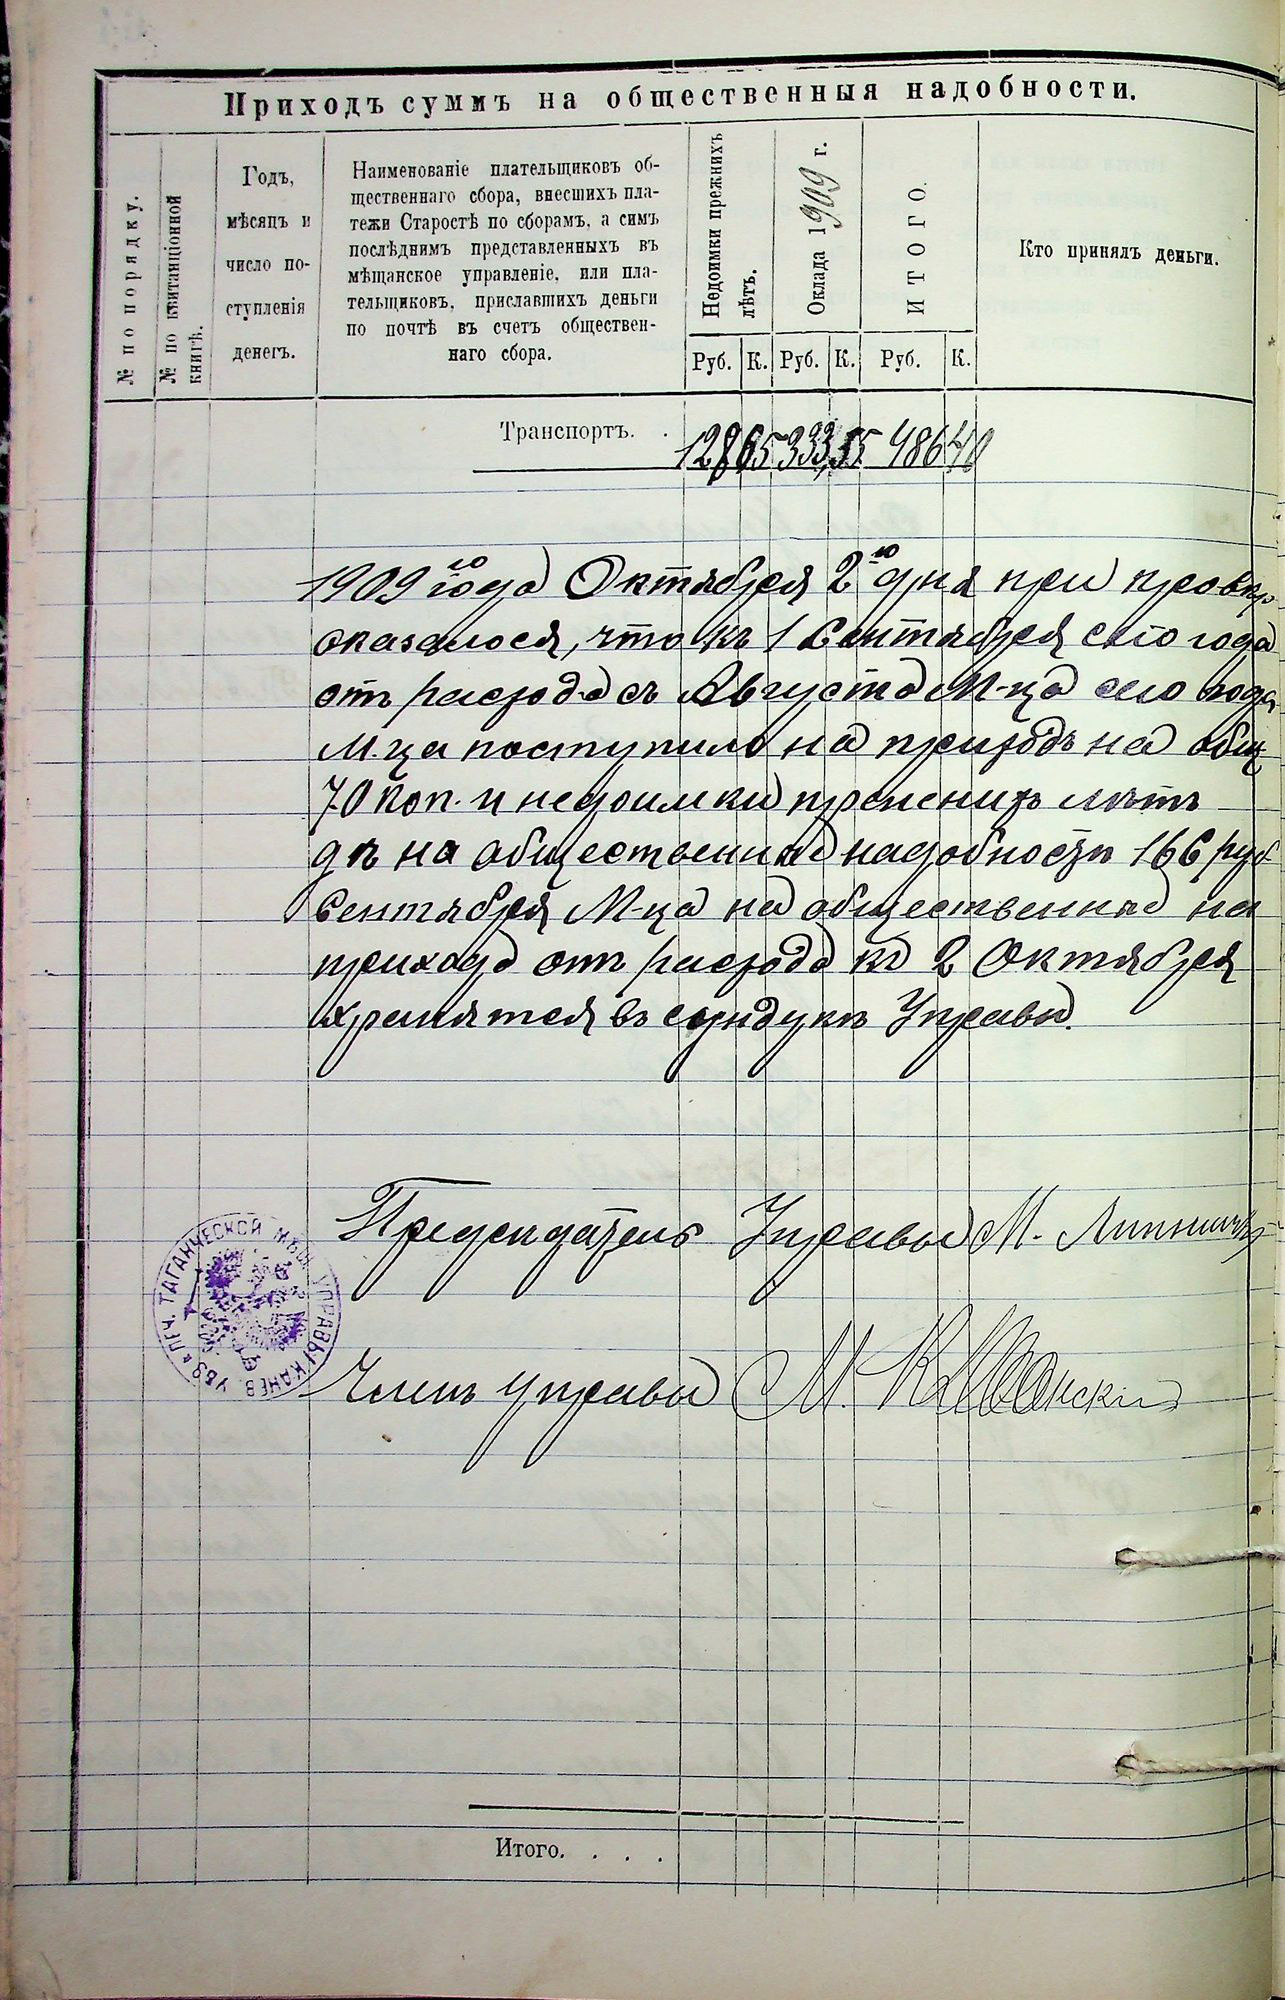 Приходъ суммъ на общественныя надобности.
№ по порядку.
№ по квитанціонной
книгѣ.
Годъ,
мѣсяцъ и
число по-
ступленія
денегъ.
Наименованіе плательщиковъ об-
щественнаго сбора, внесшихъ пла-
тежи Старостѣ по сборамъ, а симъ
послѣднимъ представленныхъ въ
мѣщанское управленіе, или пла-
тельщиковъ, приславшихъ деньги
по почтѣ въ счетъ обществен-
наго сбора.
Недоимки прежнихъ
лѣтъ.
Оклада 1909 г.
ИТОГО.
Кто принялъ деньги.
Руб. К. Руб. К. Руб. К.
Транспортъ. . 486 40
1909 го года Октября 2 го дня при провѣр
оказалося, что къ 1 Сентября сего года
отъ расхода съ Августа М-ца сего года
М-ца поступило на приходъ на общ
70 коп. и недоимки прежнихъ лѣтъ
дѣ на общественныя надобности 166 руб
Сентября М-ца на общественныя на
прихода отъ расхода к 2 Октября
хранятся въ сундукѣ Управы.
Председатель Управы М.
Членъ управы М.
ТАГАНЧЕСКОЙ МѢЩ. УПРАВЫ КАНЕВ. УѢЗ. ПЕЧ.
Итого. . . .